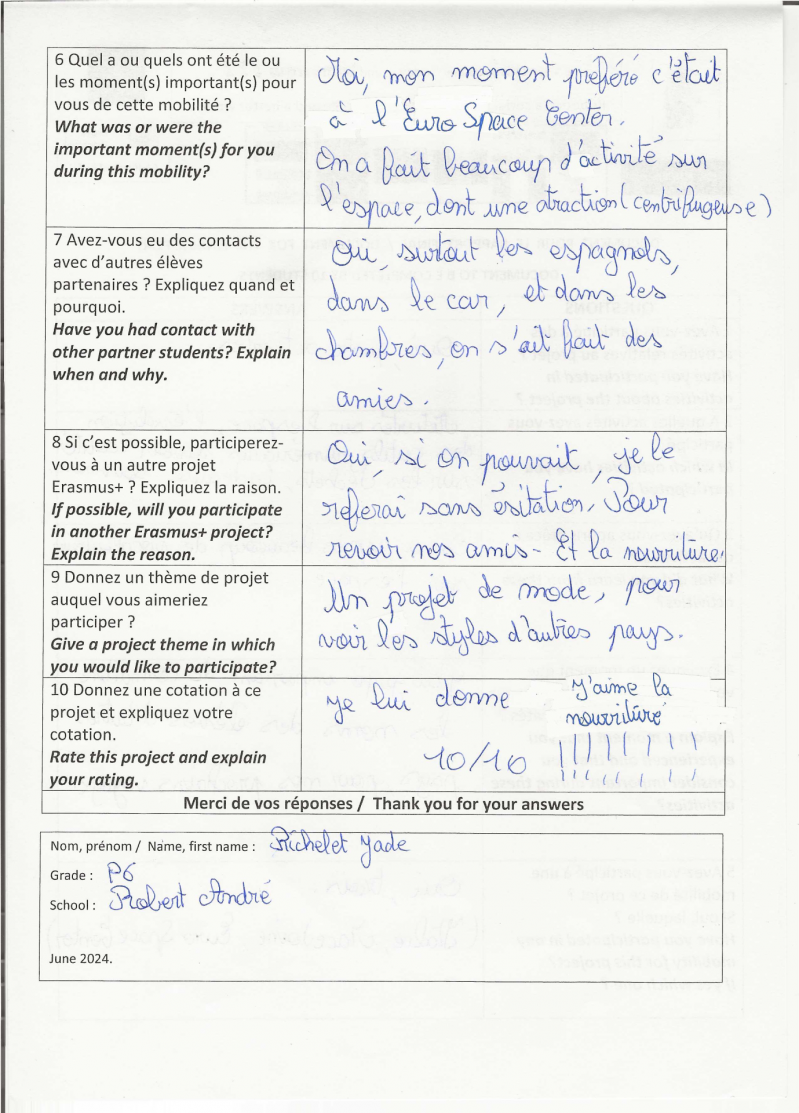 6 Quel a ou quels ont été le ou
les moment(s) important(s) pour
vous de cette mobilité ?
What was or were the
important moment(s) for you
during this mobility?
Moi, mon moment préféré c'était
à l'Euro Space Center.
On a fait beaucoup d'activité sur
l'espace, dont une atraction (centrifugeuse)
7 Avez-vous eu des contacts
avec d'autres élèves
partenaires ? Expliquez quand et
pourquoi.
Have you had contact with
other partner students? Explain
when and why.
Oui, surtout les espagnols,
dans le car, et dans les
chambres, on s'ait fait des
amies.
8 Si c'est possible, participerez-
vous à un autre projet
Erasmus+ ? Expliquez la raison.
If possible, will you participate
in another Erasmus+ project?
Explain the reason.
Oui, si on pouvait, je le
referai sans ésitation. Pour
revoir nos amis - Et la nourriture.
9 Donnez un thème de projet
auquel vous aimeriez
participer ?
Give a project theme in which
you would like to participate?
Un projet de mode, pour
voir les styles d'autres pays.
10 Donnez une cotation à ce
projet et expliquez votre
cotation.
Rate this project and explain
your rating.
Je lui donne
10/10
J'aime la
nourriture
! ! ! ! ! ! ! !
Merci de vos réponses / Thank you for your answers
Nom, prénom / Name, first name : Richelet Jade
Grade : P6
School : Robert André
June 2024.